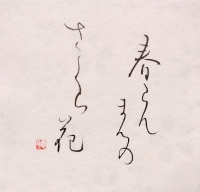 春らんまんの
さくら花